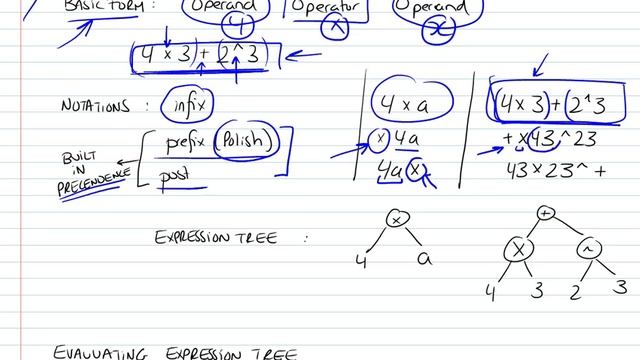 BASIC FORM : Operand Operator Operand
4 × x
(4 × 3) + (2^3)
NOTATIONS : infix 4 × a (4×3)+(2^3
prefix (Polish) × 4a + × 43 ^ 23
BUILT IN PRECENDENCE
post 4a × 43 × 23 ^ +
EXPRESSION TREE :
× +
4 a × ^
4 3 2 3
EVALUATING EXPRESSION TREE